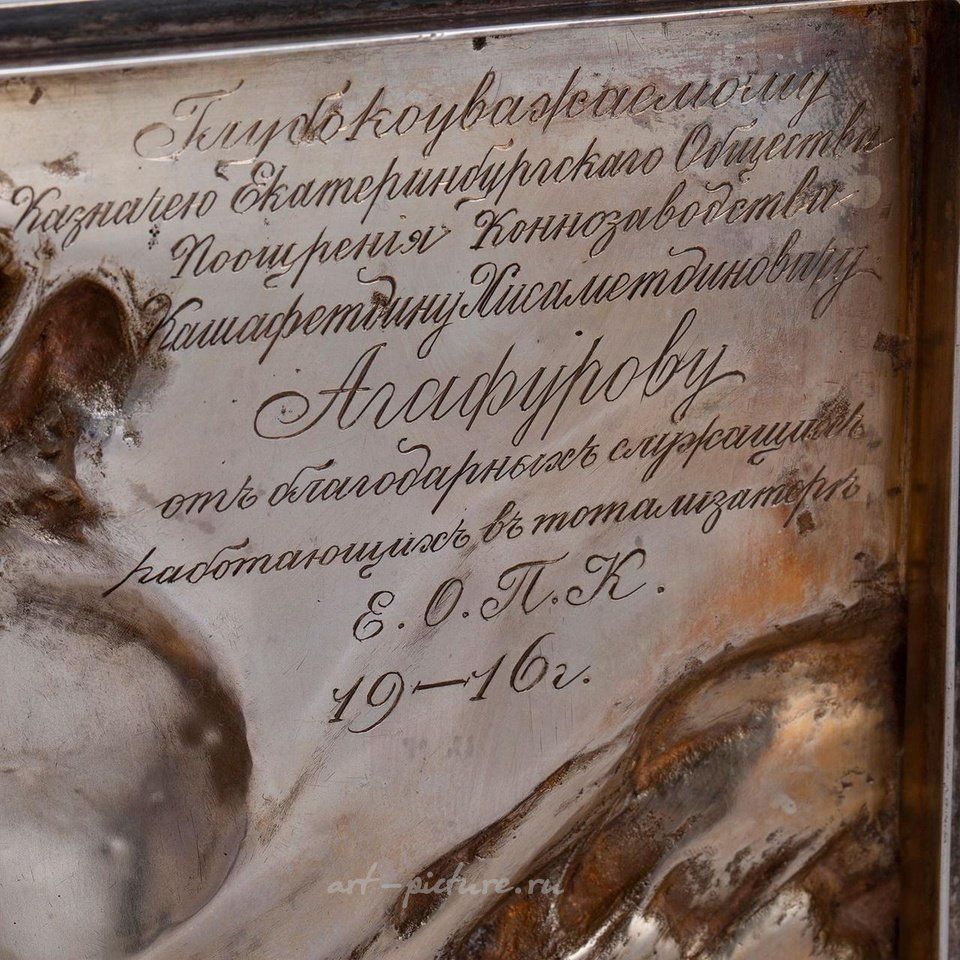 Глубокоуважаемому
Казначею Екатеринбургскаго Общества
Поощренія Коннозаводства
Кашафетдину Хисаметдиновичу
Агафурову
отъ благодарныхъ служащихъ
работающихъ въ тотализаторѣ
Е. О. П. К.
19—16 г.
art-picture.ru